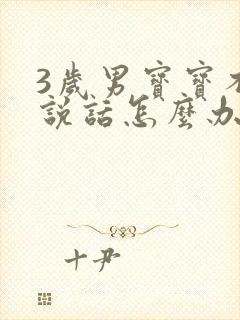 3歲男寶寶不
說話怎麼办
十尹